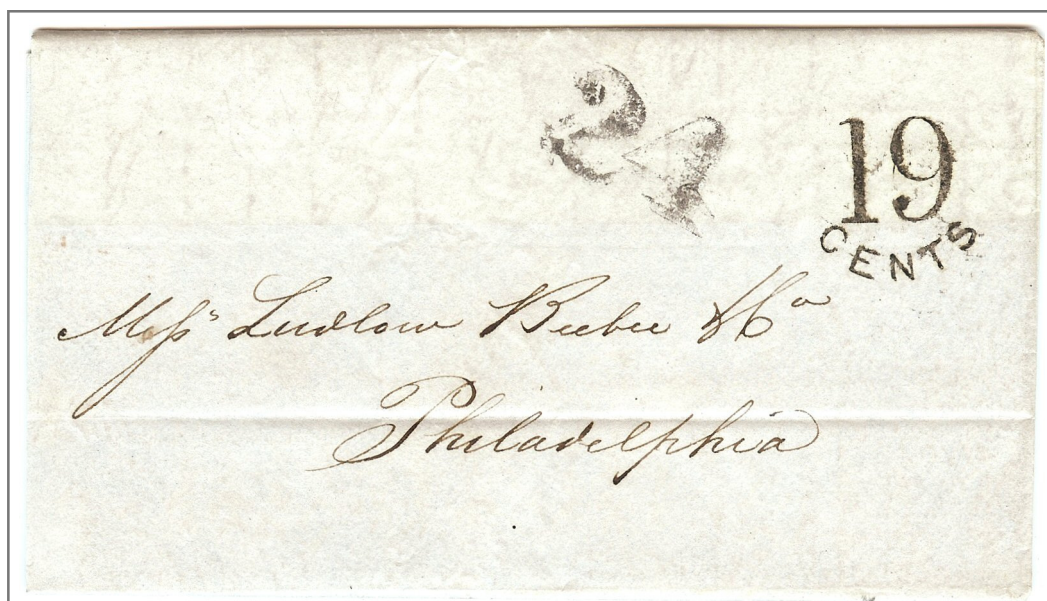 24
19
CENTS
Messrs Ludlow Beebee & Co
Philadelphia